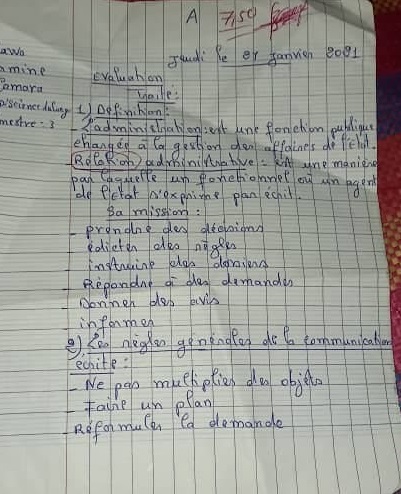 A 7,50
Jeudi le 21 Janvier 2021
awa
amine
Camara
mestre: 3
Evaluation
1) Définition:
L'administration: est une fonction publique
chargée à la gestion des affaires de l'état.
Rédaction administrative = est une manière
par laquelle un fonctionnel ou un agent
de l'état s'exprime par écrit.
Sa mission:
- prendre des décisions
- édicter des règles
- instruire des dossiers
- Répondre à des demandes
- Donner des avis
- informer
2) Les règles générales de la communication
écrite:
- Ne pas multiplier des objets
- Faire un plan
- Réformuler la demande